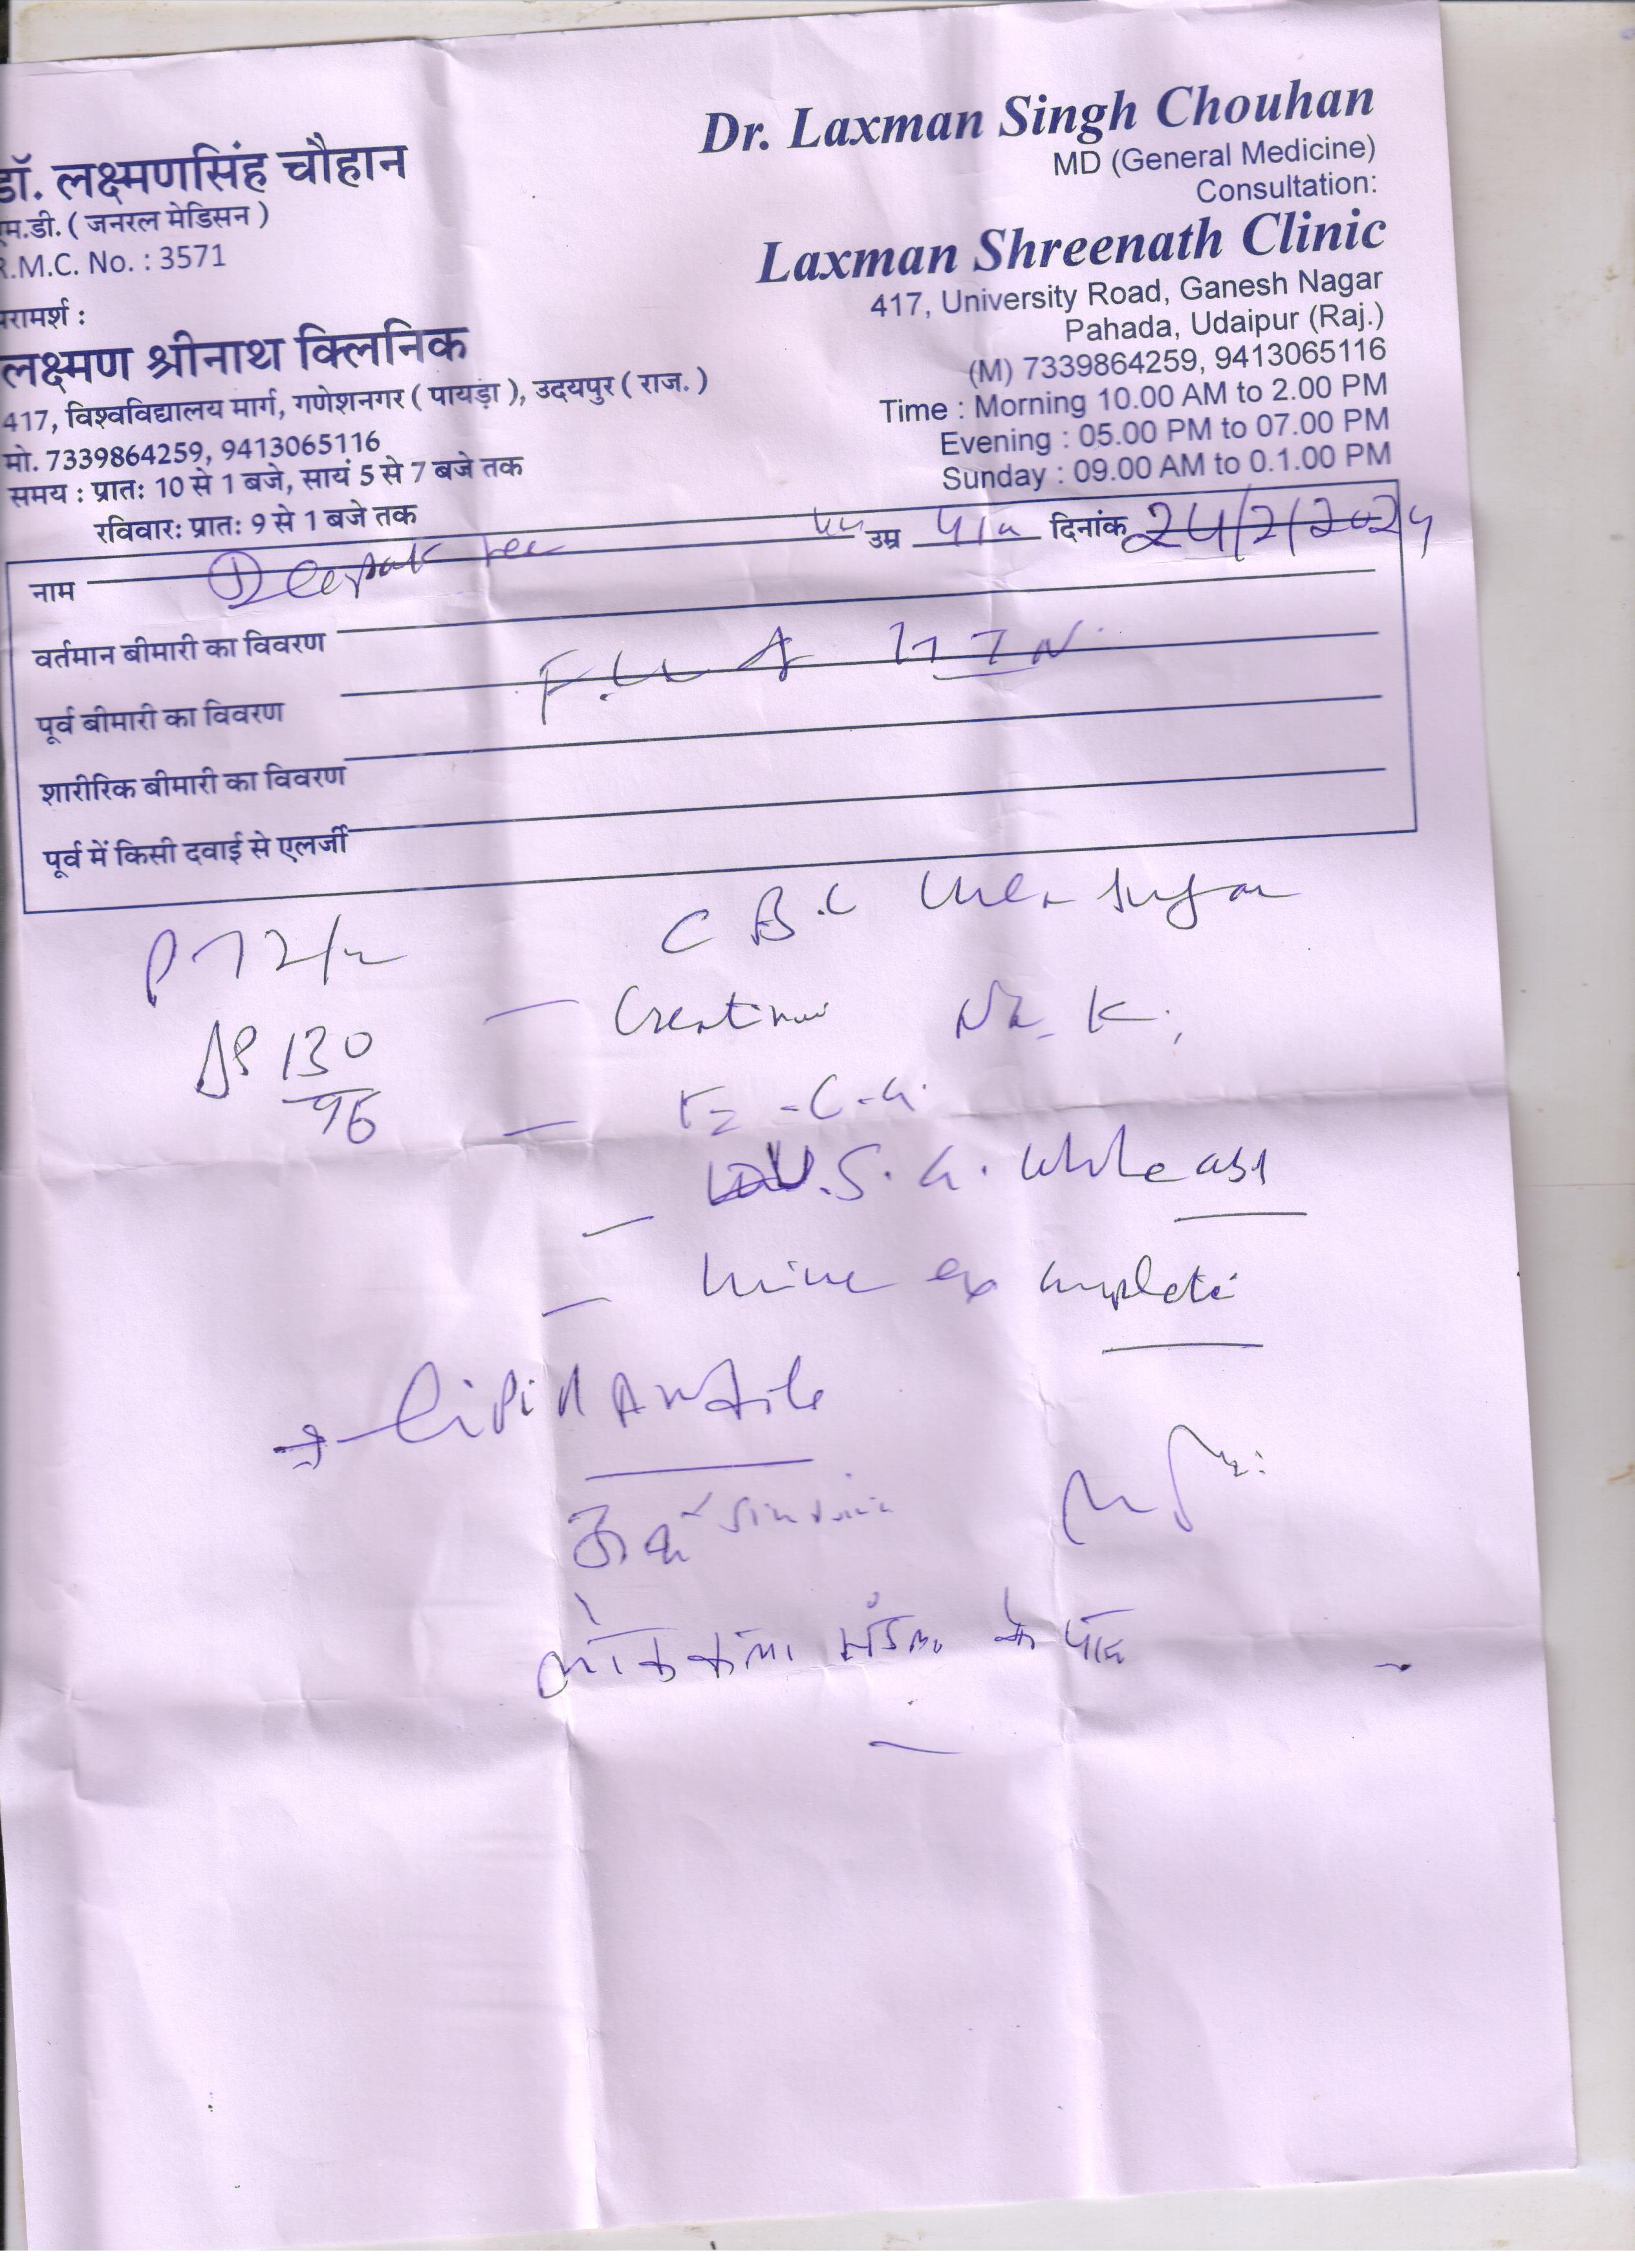 Dr. Laxman Singh Chouhan
MD (General Medicine)
Consultation:
Laxman Shreenath Clinic
417, University Road, Ganesh Nagar
Pahada, Udaipur (Raj.)
(M) 7339864259, 9413065116
Time : Morning 10.00 AM to 2.00 PM
Evening : 05.00 PM to 07.00 PM
Sunday : 09.00 AM to 0.1.00 PM
डॉ. लक्ष्मणसिंह चौहान
एम.डी. ( जनरल मेडिसन )
R.M.C. No. : 3571
परामर्श :
लक्ष्मण श्रीनाथ क्लिनिक
417, विश्वविद्यालय मार्ग, गणेशनगर ( पायड़ा ), उदयपुर ( राज. )
मो. 7339864259, 9413065116
समय : प्रातः 10 से 1 बजे, सायं 5 से 7 बजे तक
रविवारः प्रातः 9 से 1 बजे तक
नाम Deepak उम्र दिनांक 24/2/2024
वर्तमान बीमारी का विवरण
पूर्व बीमारी का विवरण
शारीरिक बीमारी का विवरण
पूर्व में किसी दवाई से एलर्जी
C B.C Urea Sugar
P 72/
Creatinine Na K
130
96
E-C-G.
U.S.G. whole abd
Urine ex complete
Lipid Profile
के पास